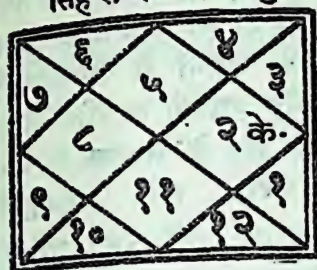 ६ ४
५ ३
७
८ २ के॰
९ ११ १
१० १२